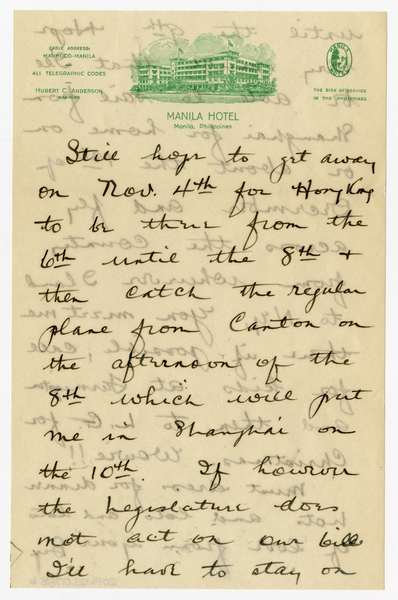 CABLE ADDRESS:
MANHOCO-MANILA
ALL TELEGRAPHIC CODES
HUBERT C. ANDERSON
MANAGER
MANILA HOTEL
THE SIGN OF SERVICE
IN THE PHILIPPINES
MANILA HOTEL
Manila, Philippines
Still hope to get away
on Nov. 4th for Hong Kong
to be there from the
6th until the 8th +
then catch the regular
plane from Canton on
the afternoon of the
8th which will put
me in Shanghai on
the 10th. If however
the Legislature does
not act on our bill
I'll have to stay on